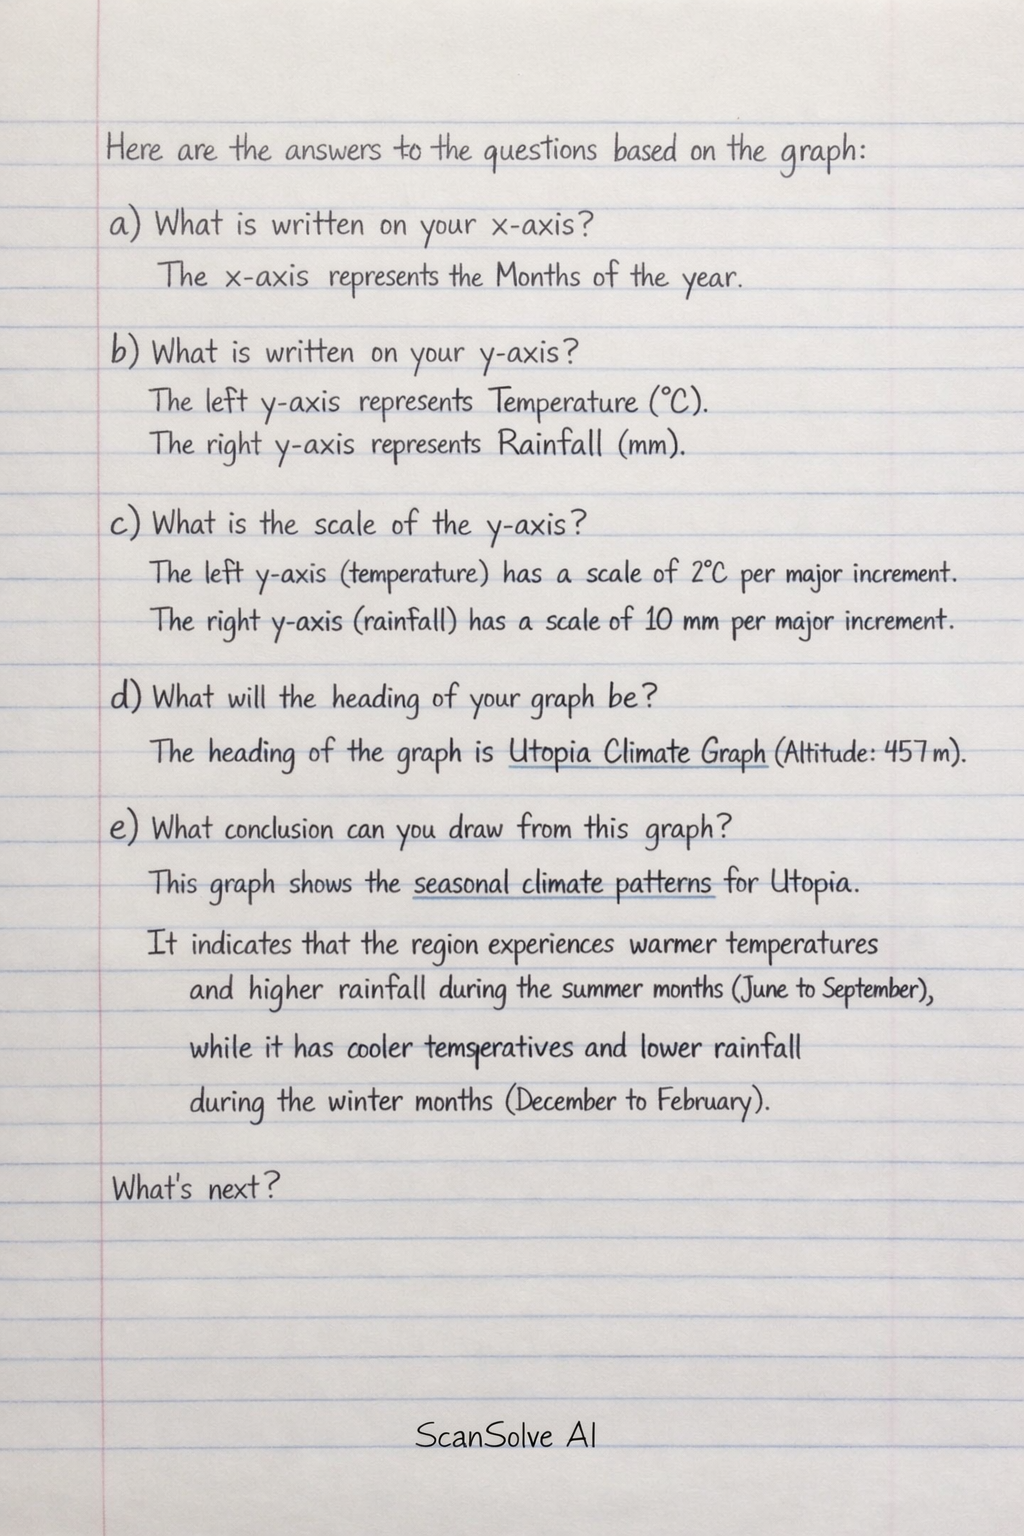 Here are the answers to the questions based on the graph:
a) What is written on your x-axis?
The x-axis represents the Months of the year.
b) What is written on your y-axis?
The left y-axis represents Temperature (°C).
The right y-axis represents Rainfall (mm).
c) What is the scale of the y-axis?
The left y-axis (temperature) has a scale of 2°C per major increment.
The right y-axis (rainfall) has a scale of 10 mm per major increment.
d) What will the heading of your graph be?
The heading of the graph is Utopia Climate Graph (Altitude: 457 m).
e) What conclusion can you draw from this graph?
This graph shows the seasonal climate patterns for Utopia.
It indicates that the region experiences warmer temperatures
and higher rainfall during the summer months (June to September),
while it has cooler temsperatives and lower rainfall
during the winter months (December to February).
What's next?
ScanSolve AI